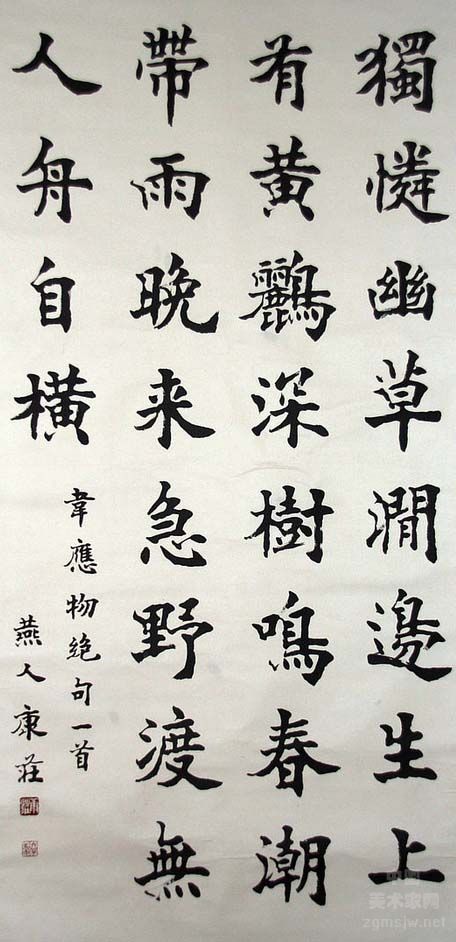 獨憐幽草澗邊生上
有黄鸝深樹鳴春潮
帶雨晚来急野渡無
人舟自橫
韋應物绝句一首
燕人康莊
美术家网
zgmsjw.net